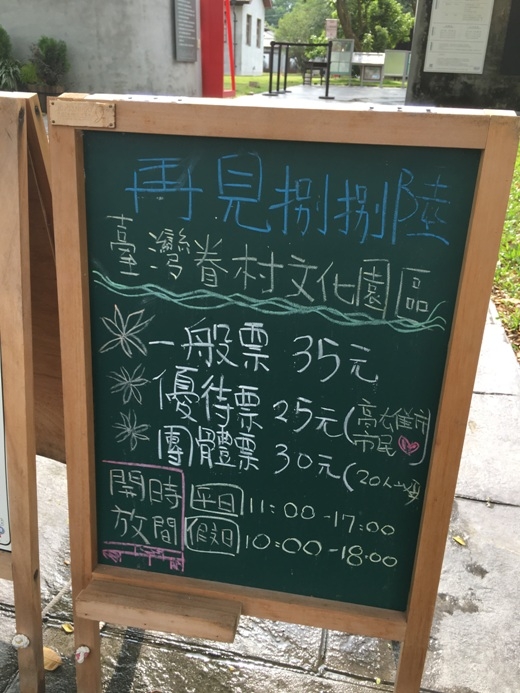 再見捌捌陸
臺灣眷村文化園區
一般票 35元
優待票 25元(高雄市市民)
團體票 30元(20人以上)
開放時間
平日 11:00-17:00
假日 10:00-18:00